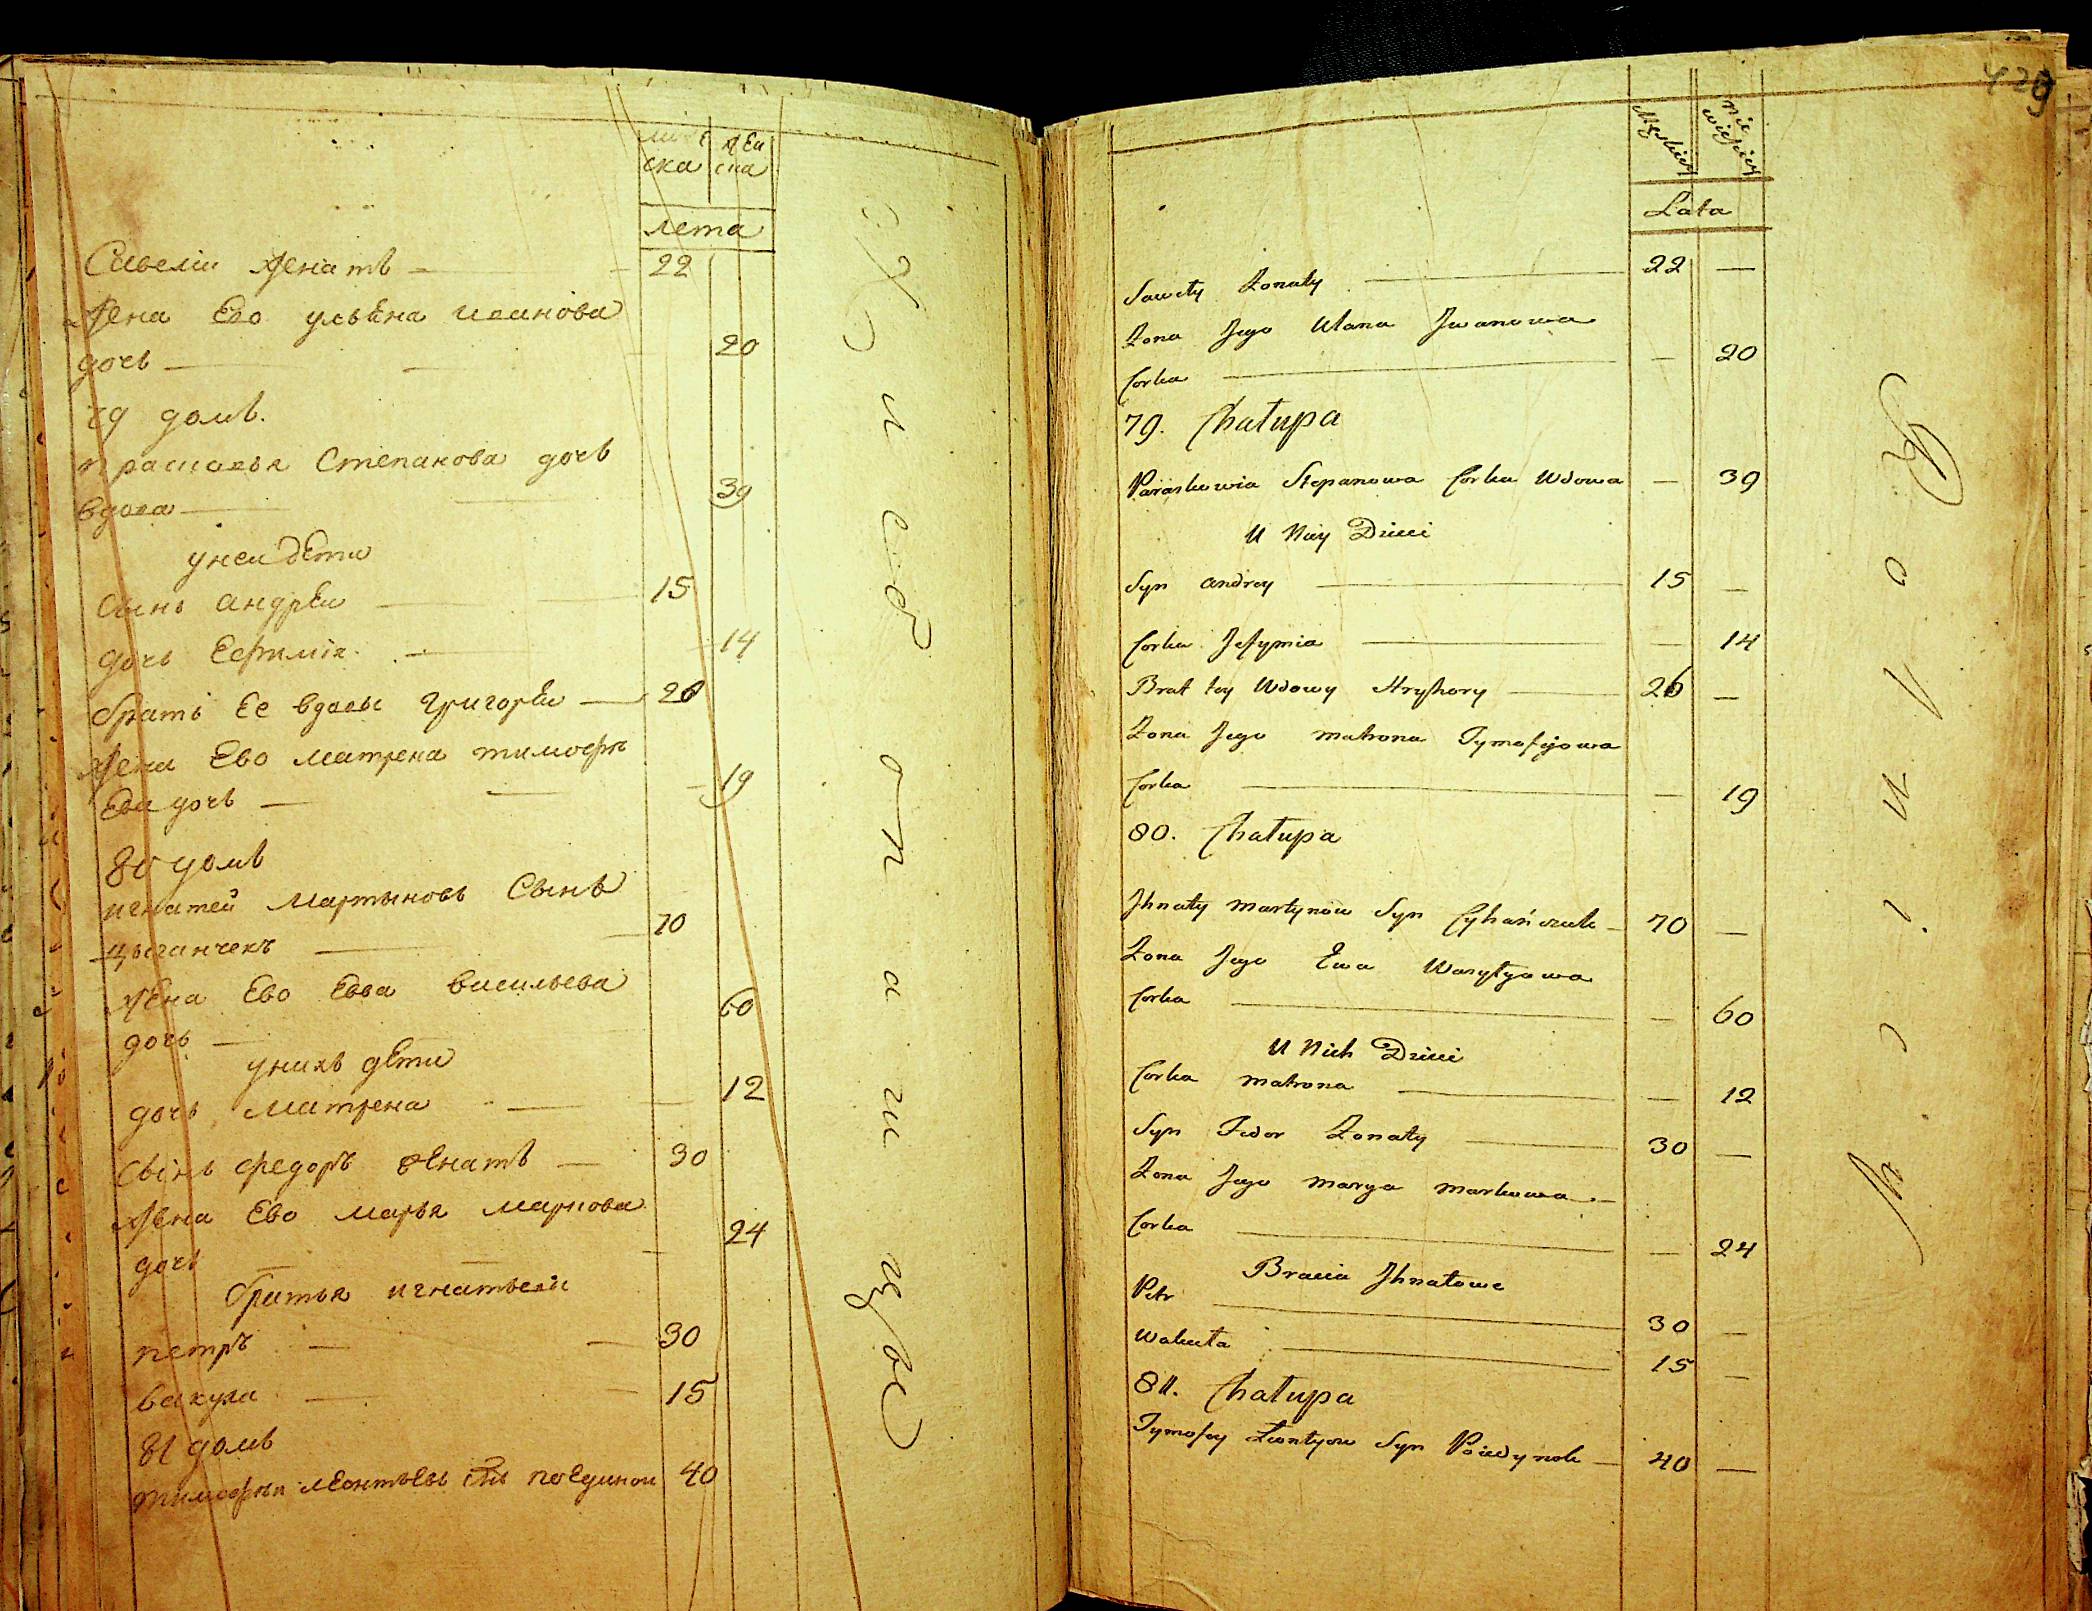 ска ска
лета
Савелiи женатъ 22
жена Ево ульѣна иванова
дочь 20
79 домъ.
прасковья Степанова дочь
вдова 39
унеи дѣти
Сынъ андрѣи 15
дочь Ефимiя 14
братъ Ее вдовы григорѣи 26
жена Ево матрена тимофѣ
Ева дочь 19
80 домъ
игнатей мартыновъ Сынъ
цыганчекъ 70
жена Ево Евва васильева
дочь 60
унихъ дѣти
дочь матрена 12
Сынъ федоръ женатъ 30
жена Ево марья маркова
дочь 24
братья игнатьевы
петръ 30
вакула 15
81 домъ
тимофѣи леонтьевъ снъ поединок 40
священно
429
Męskiey
nie wieściey
Lata
Sawely Żonaty 22 —
Żona Jego Ulana Jwanowa
Corka — 20
79. Chałupa
Paraskowia Stepanowa Corka Wdowa — 39
U Niey Dzieci
Syn andrey 15 —
Corka Jefymia — 14
Brat tey Wdowy Hryhory 26 —
Żona Jego matrona Tymofijowa
Corka — 19
80. Chałupa
Jhnaty martynow Syn Cyhańczuk 70 —
Żona Jego Ewa Wasylyowa
Corka — 60
U Nich Dzieci
Corka matrona — 12
Syn Fedor Żonaty 30 —
Żona Jego marya markowa
Corka — 24
Bracia Jhnatowe
Petr 30 —
Wakuła 15 —
81. Chałupa
Tymofey Leontyow Syn Poiedynok 40 —